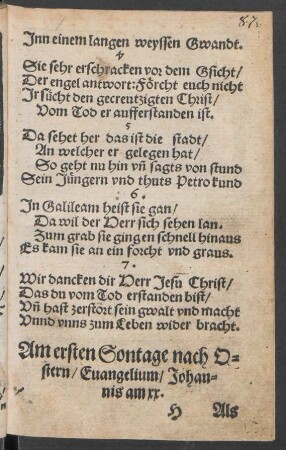 87.
Inn einem langen weyssen Gwandt.
4
Sie sehr erschracken vor dem Gsicht/
Der engel antwort: Förcht euch nicht
Ir sücht den gecreutzigten Christ/
Vom Tod er aufferstanden ist.
5
Da sehet her das ist die stadt/
An welcher er gelegen hat/
So geht nu hin vn̄ sagts von stund
Sein Jüngern vnd thuts Petro kund
6.
In Galileam heist sie gan/
Da wil der Herr sich sehen lan.
Zum grab sie gingen schnell hinaus
Es kam sie an ein forcht vnd graus.
7.
Wir dancken dir Herr Jesu Christ/
Das du vom Tod erstanden bist/
Vn̄ hast zerstört sein gwalt vnd macht
Vnnd vnns zum Leben wider bracht.
Am ersten Sontage nach O-
stern/ Euangelium/ Johan-
nis am xx.
H Als